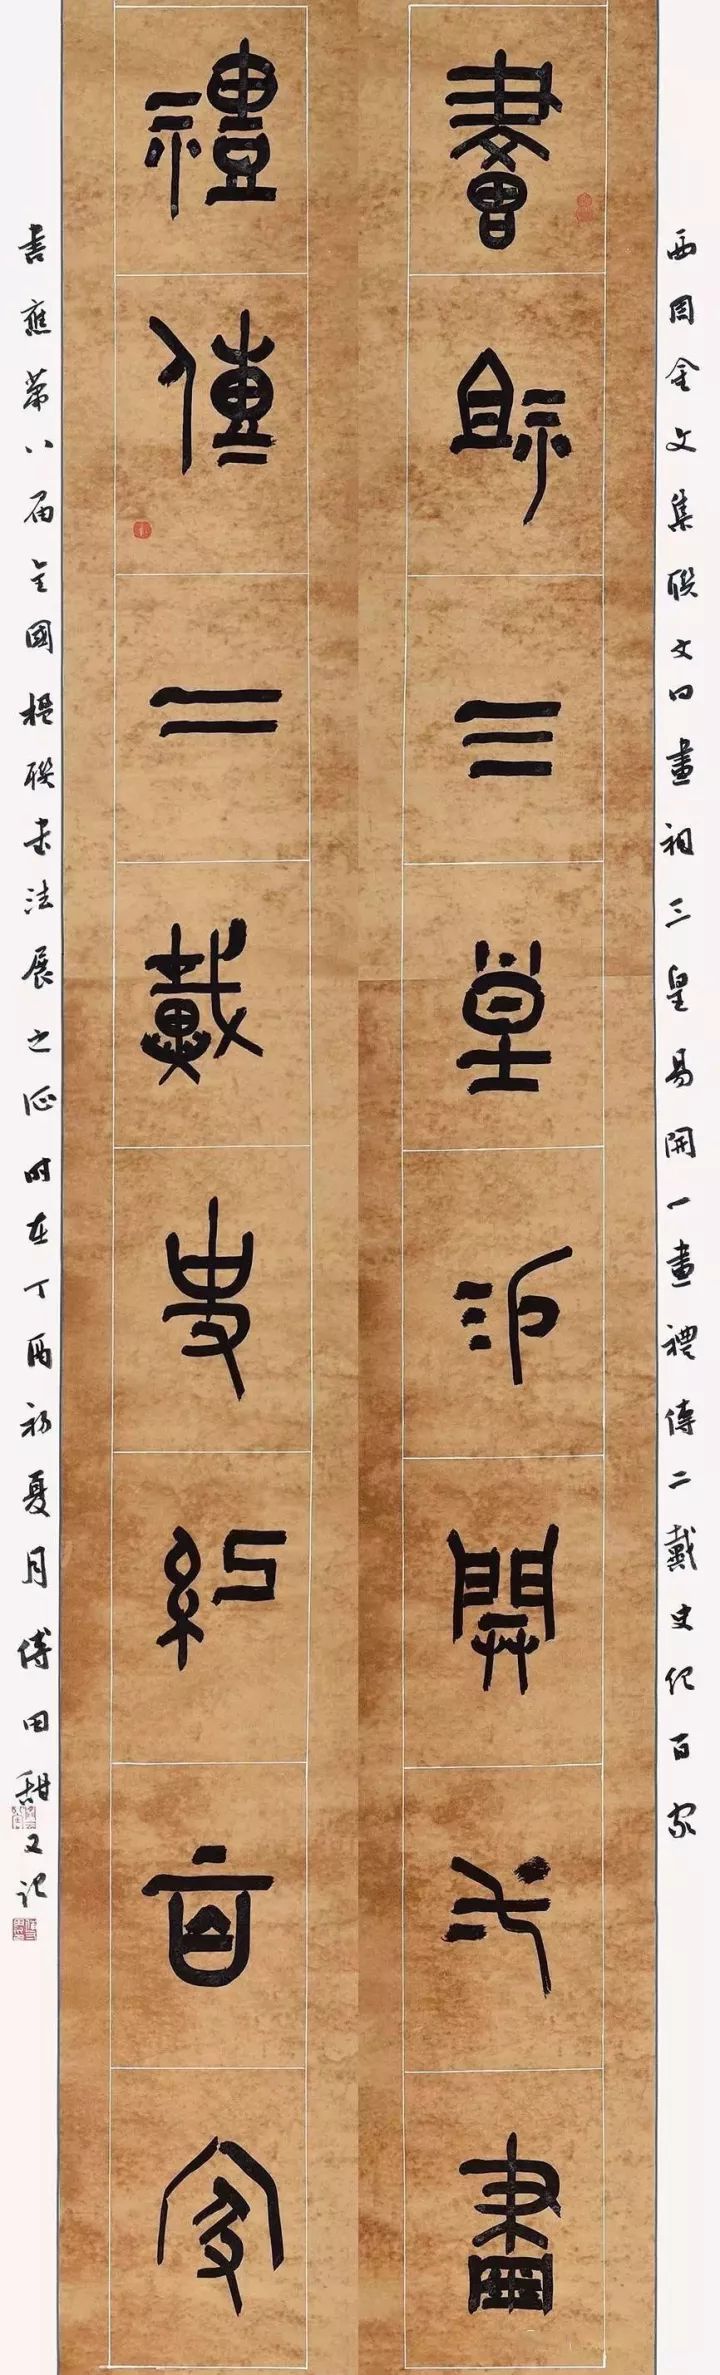 西周金文集聯文曰畫祖三皇易開一畫禮傳二戴史紀百家
書祖三皇易開弌畫
禮傳二戴史紀百家
書應第八届全國楹聯書法展之徵時在丁酉初夏月傅田甜又記